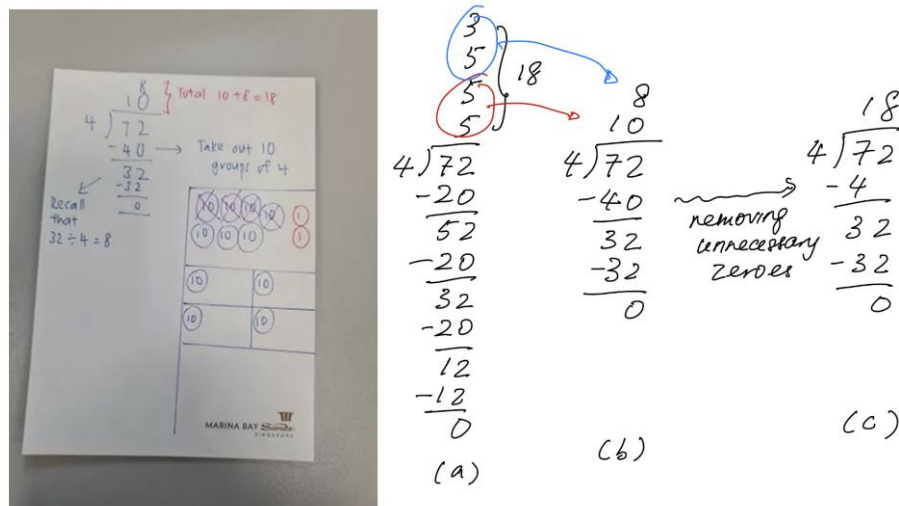 8
10
} Total 10 + 8 = 18
4 ) 72
-40 → Take out 10
groups of 4
32
-32
0
Recall
that
32 ÷ 4 = 8
10 10 10 10 1
10 10 10 1
10 10
10 10
MARINA BAY Sands
SINGAPORE
3
5
5
5
18
4 ) 72
-20
52
-20
32
-20
12
-12
0
(a)
8
10
4 ) 72
-40
32
-32
0
(b)
removing
unnecessary
zeroes
18
4 ) 72
-4
32
-32
0
(c)